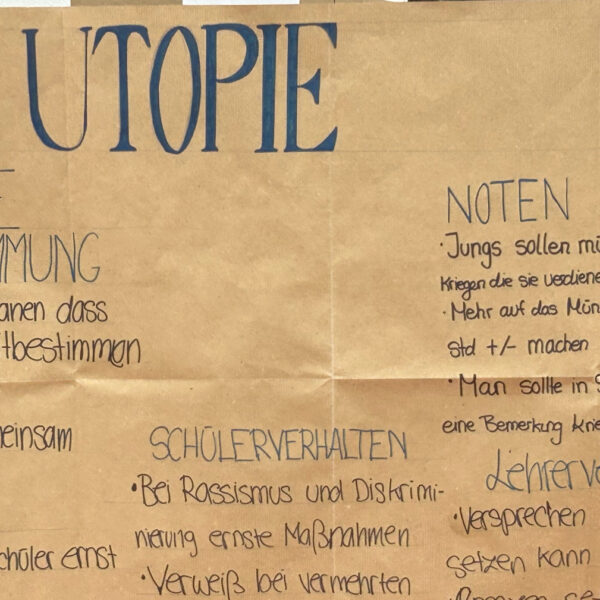 UTOPIE
MMUNG
anen dass
tbestimman
einsam
chüler ernst
SCHÜLERVERHALTEN
• Bei Rassismus und Diskrimi-
nierung ernste Maßnahmen
• Verweiß bei vermehrten
NOTEN
• Jungs sollen mü
Kriegen die sie verdiene
• Mehr auf das Mün
std +/- machen
• Man sollte in S
eine Bemerkung krie
Lehrerve
• Versprechen
setzen kann